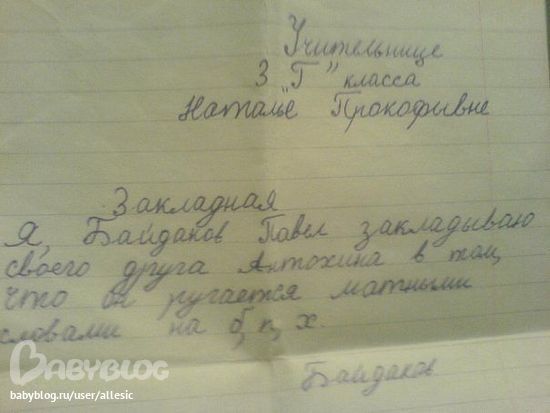 Учительнице
3 "Г" класса
Наталье Прокофивне
Закладная
Я, Байдаков Павел закладываю
своего друга Антохина в том,
что он ругается матными
словами на б, п, х.
Байдаков
BABYBLOG
babyblog.ru/user/allesic